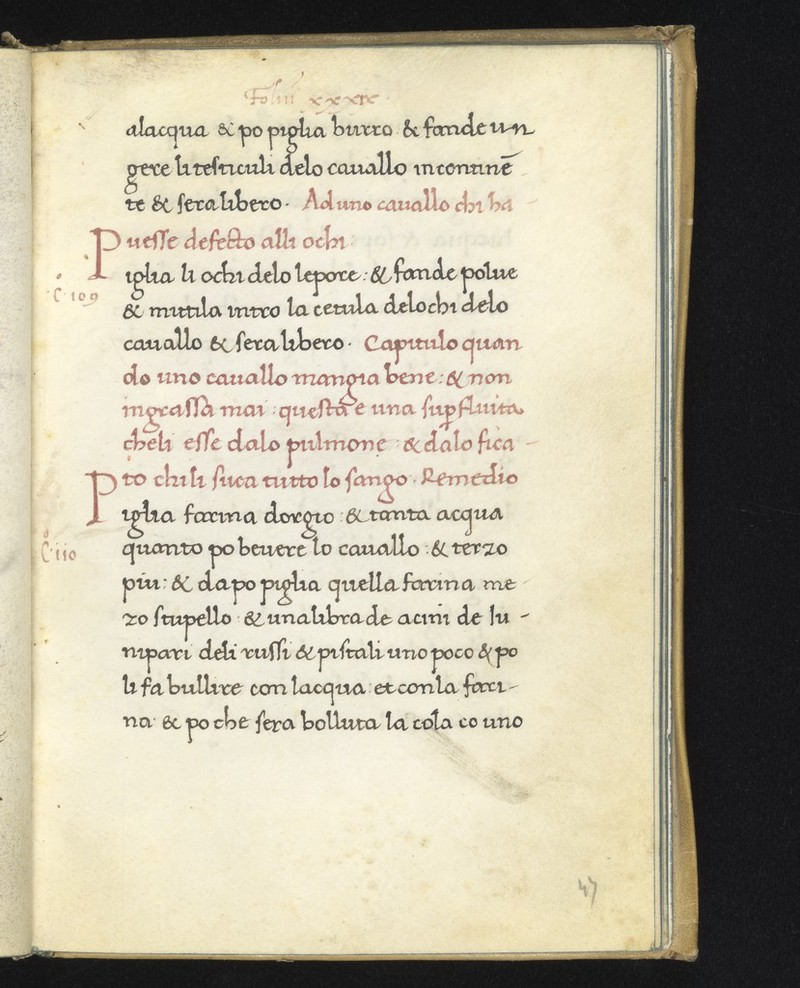 Foliu xxxix
alacqua & po piglia burro & fande un
gere li testiculi delo cauallo incontinē
te & sera libero. Ad uno cauallo chi ha
uesse defecto alli ochi.
Piglia li ochi delo lepore: & fande polue
C.109
& mittila intro la cetula delochi delo
cauallo & sera libero. Capitulo quan
do uno cauallo mangia bene: & non
ingrassa mai: questa e una suꝑfluita
cheli esse dalo pulmone & dalo fica -
to chi li suca tutto lo sango. Remedio
Piglia farina dorgio: & tanta acqua
C.110
quanto po beuere lo cauallo: & terzo
piu: & dapo piglia quella farina me
zo stupello & una libra de acini de Iu -
nipari deli russi & pistali uno poco & po
li fa bullire con lacqua et con la fari -
na & po che sera bolluta la cola co uno
47